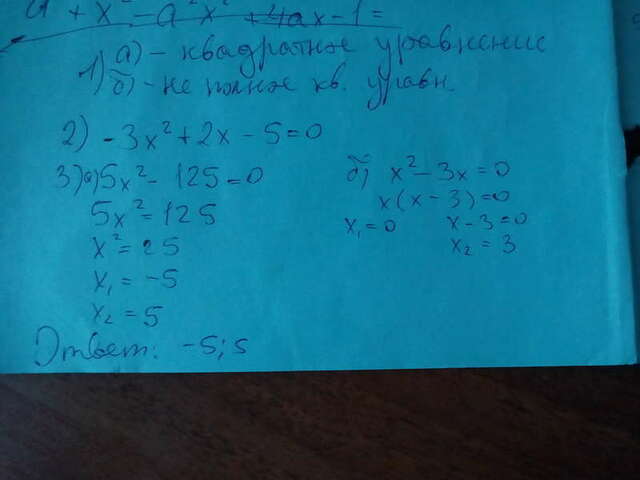 + x² - a²x² + 4ax - 1 =
1) а) - квадратное уравнение
б) - не полное кв. уравн.
2) - 3x² + 2x - 5 = 0
3) а) 5x² - 125 = 0
5x² = 125
x² = 25
x₁ = -5
x₂ = 5
Ответ: -5; 5
б) x² - 3x = 0
x(x - 3) = 0
x₁ = 0 x - 3 = 0
x₂ = 3